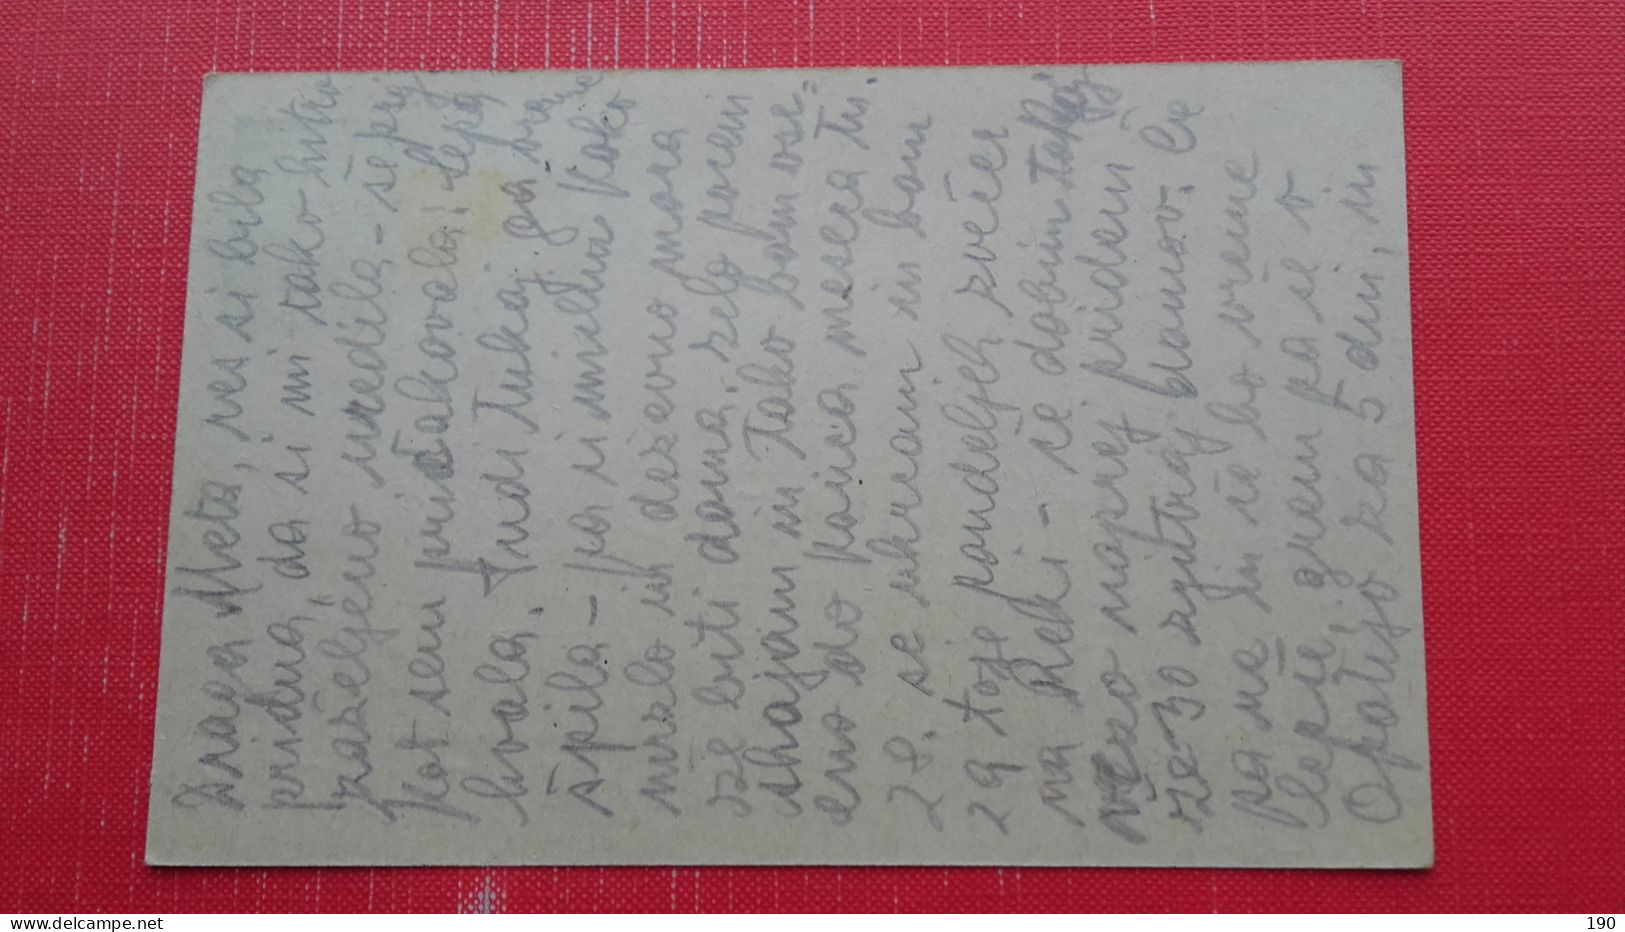 Draga Meta, res si bila
pridna, da si mi tako hitro
zaželjeno uredila - še prej
kot sem pričakovala! Lepa
hvala. Tudi tukaj ga vreme
špila - pa si misliva kako
mrzlo in deževno mora
šele biti doma. Zelo poceni
shajam in tako bom ose=
eno do konca meseca tu.
28. se vkrcam in bom
29 to je pondeljek zvečer
na Reki - če dobim takoj
vezo naprej pridem
že 30 zjutraj domov. Če
pa ne in če bo vreme
lepše, grem pa še v
Opatijo za 5 dni, in
190